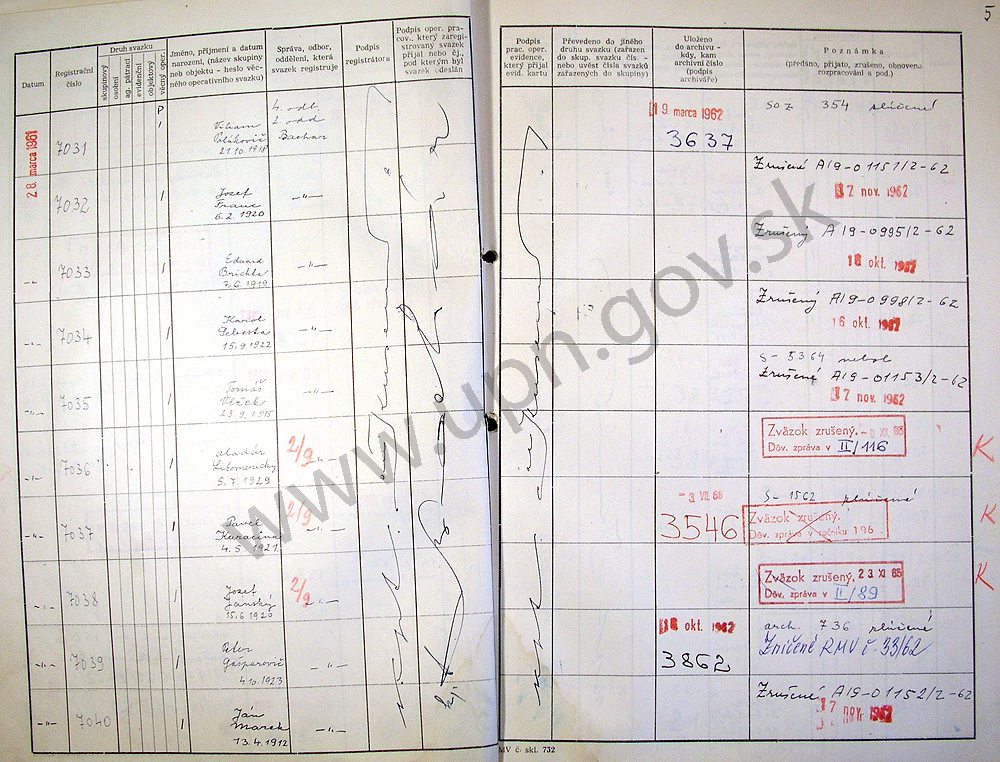 5
Datum
Registrační číslo
Druh svazku
skupinový
osobní
ag. pátrací
evidenční
objektový
věcný oper.
Jméno, příjmení a datum
narození, (název skupiny
neb objektu - heslo věc-
ného operativního svazku)
Správa, odbor,
oddělení, která
svazek registruje
Podpis
registrátora
Podpis oper. pra-
cov., který zareg-
istrovaný svazek
přijal nebo čj.,
pod kterým byl
svazek odeslán
Podpis
prac. oper.
evidence,
který přijal
evid. kartu
Převedeno do jiného
druhu svazku (zařazen
do skup. svazku čís. -
nebo uvést čísla svazků
zařazených do skupiny)
Uloženo
do archivu -
kdy, kam
archivní číslo
(podpis
archiváře)
Poznámka
(předáno, přijato, zrušeno, obnoveno
rozpracování a pod.)
28. marca 1961
7031
P
Viliam
Polakovič
21.10.1918
4. odb.
2. odd
Bachar
19 marca 1962
3637
SOZ 354
7032
Jozef
Franc
6.2.1920
-"-
Zrušené A19-01151/2-62
17 nov. 1962
-"-
7033
Eduard
Brichta
3.6.1919
-"-
Zrušený A19-0995/2-62
16 okt. 1962
-"-
7034
Karol
Šebesta
15.9.1922
-"-
Zrušený A19-0998/2-62
16 okt. 1962
-"-
7035
Tomáš
Vlček
23.9.1915
-"-
S-5364
Zrušené A19-01153/2-62
17 nov. 1962
-"-
7036
Aladár
Litomerický
5.7.1929
2/9
Zväzok zrušený.
Dův. zpráva v II/116
K
-"-
7037
Pavel
Kuracina
4.5.1921
2/9
-"-
-3 VII. 68
3546
S-1562
Zväzok zrušený.
Dův. zpráva v ročníku 196
K
-"-
7038
Jozef
Janský
15.6.1920
2/9
-"-
Zväzok zrušený. 23 XI 65
Dův. zpráva v II/89
K
-"-
7039
Peter
Gašparovič
4.10.1923
-"-
16 okt. 1962
3862
arch. 736
Zničené RMV č. 33/62
-"-
7040
Ján
Marek
13.4.1912
-"-
Zrušené A19-01152/2-62
17 nov. 1962
MV č. skl. 732
www.upn.gov.sk